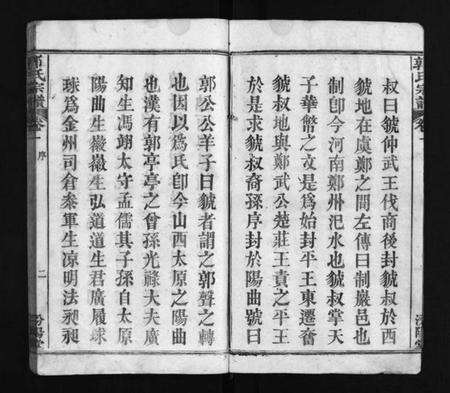 叔曰虢仲武王伐商後封虢叔於西
虢地在虞鄭之間左傳曰制巖邑也
制卽今河南鄭州汜水也虢叔掌天
子華幣之文是爲始封平王東遷奪
虢叔地與鄭武公楚莊王責之平王
於是求虢叔裔孫序封於陽曲號曰
郭公公羊子曰虢者謂之郭聲之轉
也因以爲氏卽今山西太原之陽曲
也漢有郭亭亭之曾孫光祿大夫廣
知生馮翊太守孟儒其子孫自太原
陽曲生徽徽生弘道道生君廣履球
球爲金州司倉叅軍生凉明法昶昶
郭氏宗譜
卷一
序
二
汾陽堂
郭氏宗譜
卷